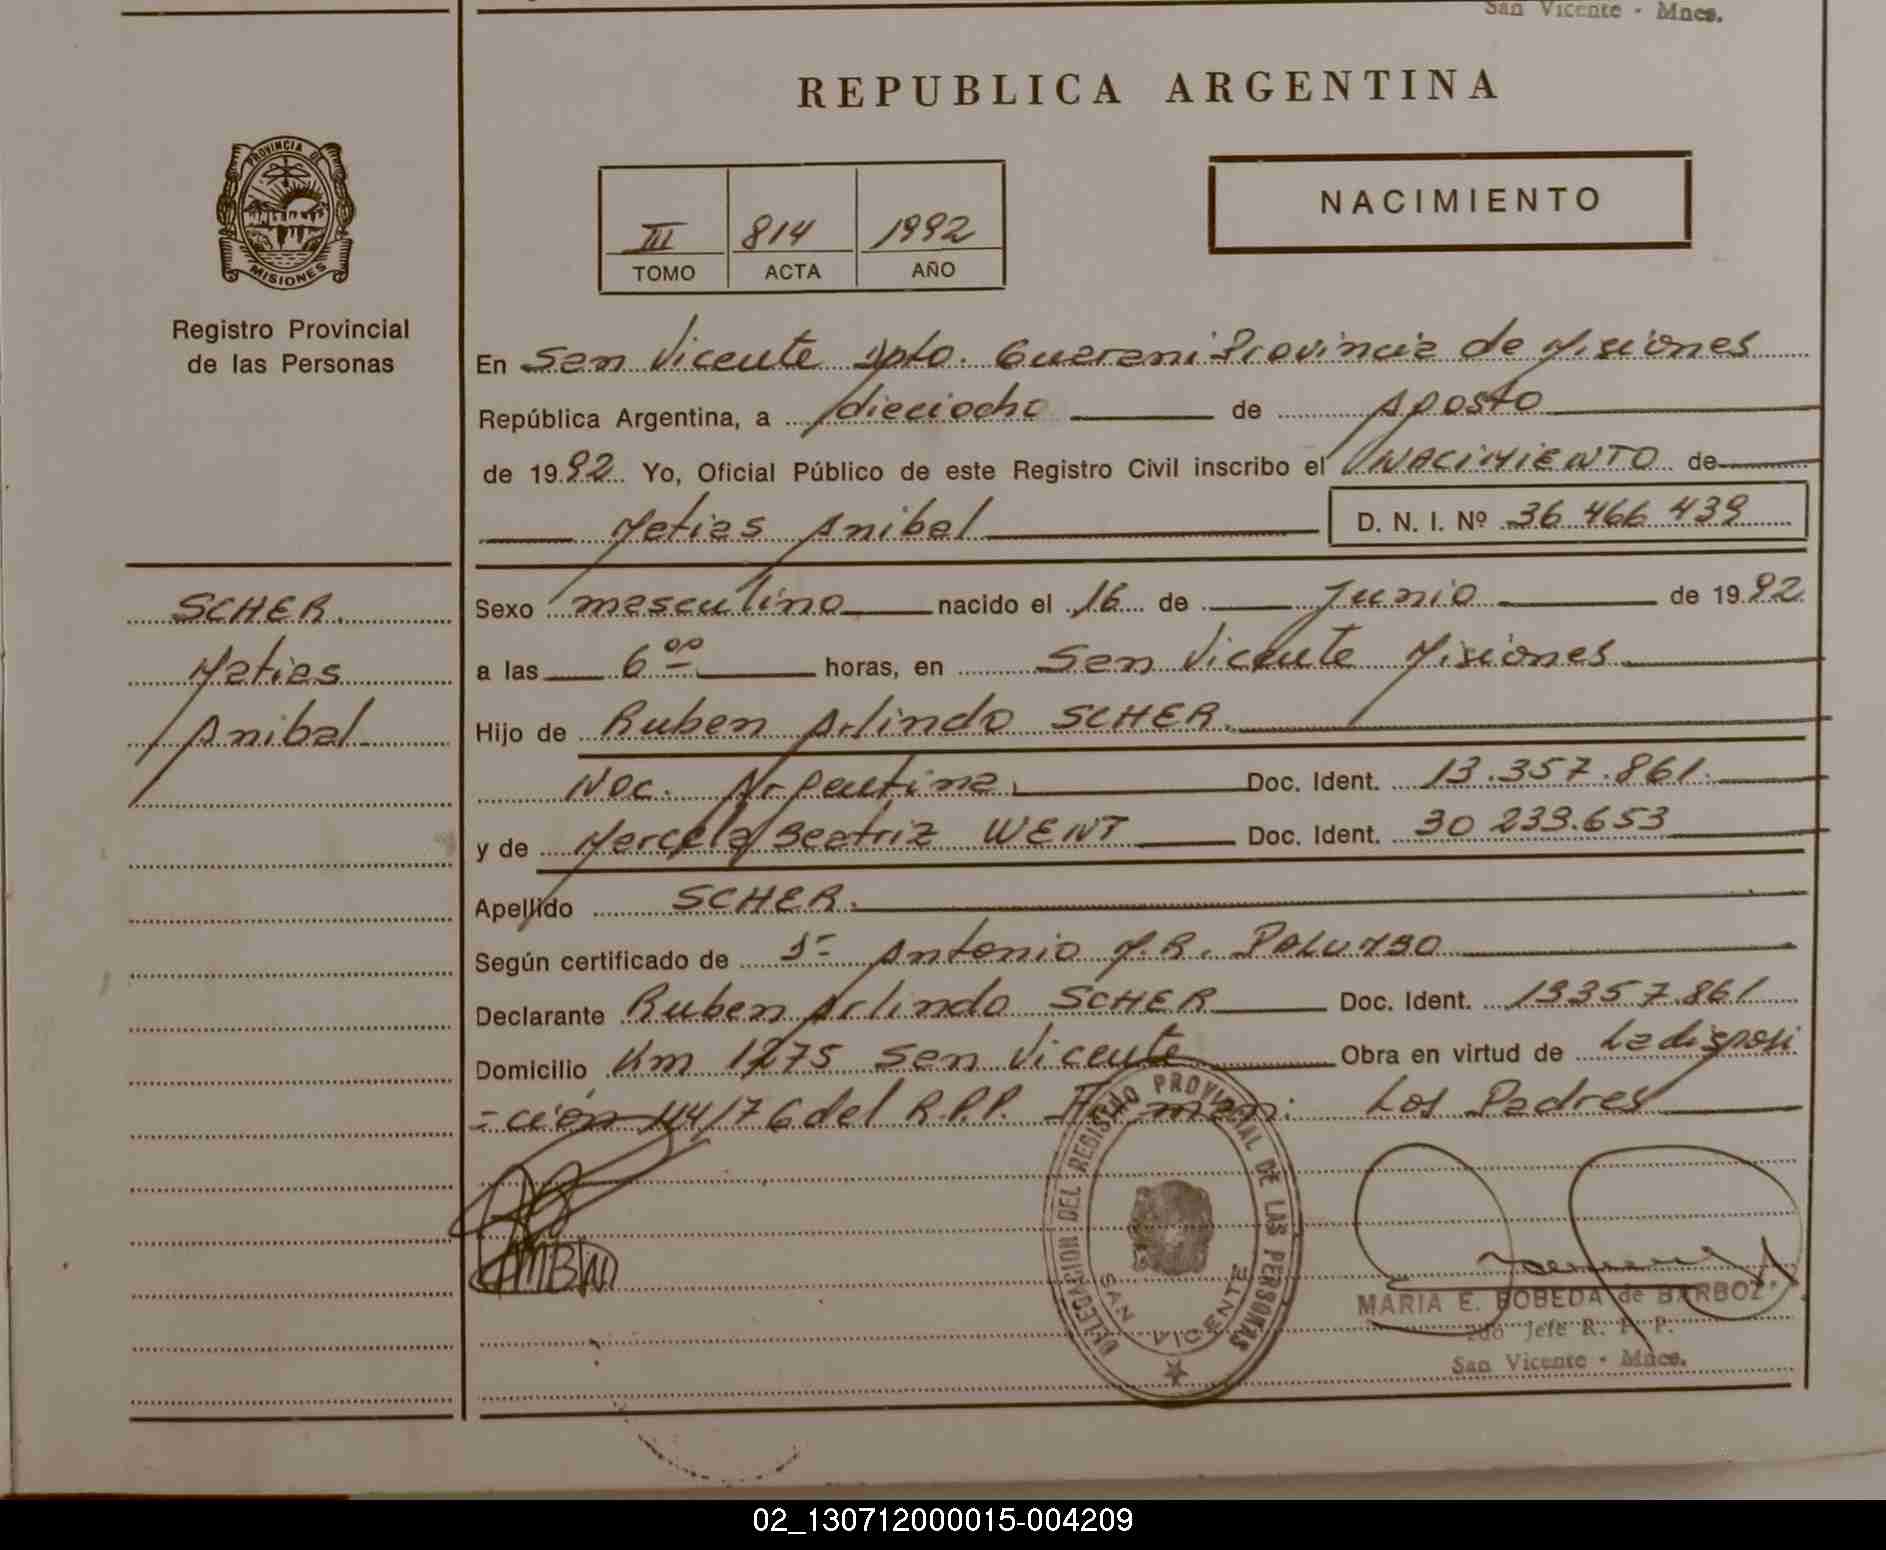 San Vicente - Mnes.
REPUBLICA ARGENTINA
PROVINCIA DE
MISIONES
Registro Provincial
de las Personas
III 814 1992
TOMO ACTA AÑO
NACIMIENTO
En San Vicente Dpto. Guarani Provincia de Misiones
República Argentina, a dieciocho de Agosto
de 1992 Yo, Oficial Público de este Registro Civil inscribo el NACIMIENTO de
Matias Anibal D. N. I. Nº 36 466 439
SCHER.
Matias
Anibal
Sexo masculino nacido el 16 de Junio de 1992
a las 6 00 horas, en San Vicente Misiones
Hijo de Ruben Arlindo SCHER.
Nac. Argentina. Doc. Ident. 13.357.861.
y de Marcela Beatriz WENT Doc. Ident. 30 239.653
Apellido SCHER.
Según certificado de Antonio M.R. PALUZSO
Declarante Ruben Arlindo SCHER Doc. Ident. 13357.861
Domicilio Km 1275 San Vicente Obra en virtud de La disposi
=ción 44/76 del R.P.P. Los Padres
MBW
DELEGACION DEL REGISTRO PROVINCIAL DE LAS PERSONAS
SAN VICENTE
MARIA E. BOBEDA de BARBOZA
2do Jefe R. P. P.
San Vicente - Mnes.
02_130712000015-004209